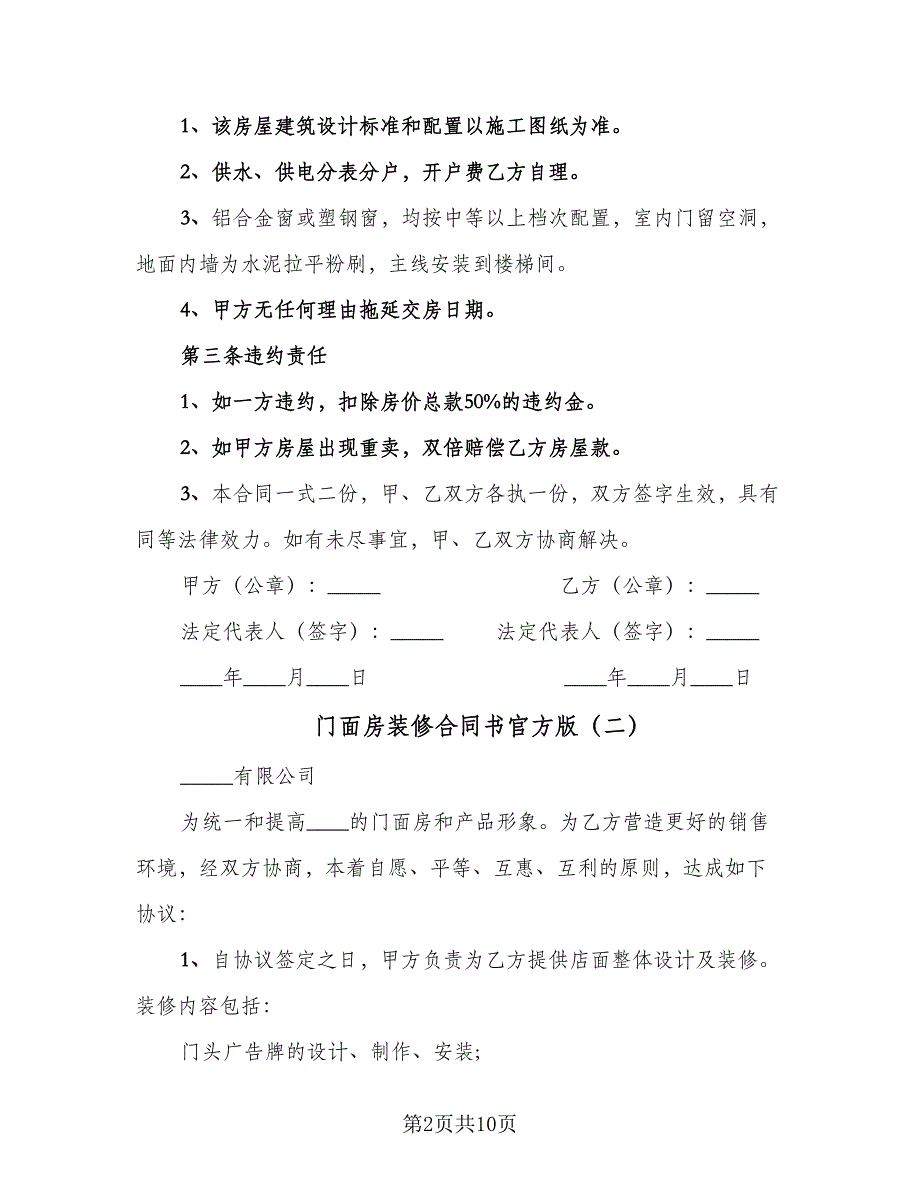 1、该房屋建筑设计标准和配置以施工图纸为准。
2、供水、供电分表分户，开户费乙方自理。
3、铝合金窗或塑钢窗，均按中等以上档次配置，室内门留空洞，
地面内墙为水泥拉平粉刷，主线安装到楼梯间。
4、甲方无任何理由拖延交房日期。
第三条违约责任
1、如一方违约，扣除房价总款50%的违约金。
2、如甲方房屋出现重卖，双倍赔偿乙方房屋款。
3、本合同一式二份，甲、乙双方各执一份，双方签字生效，具有
同等法律效力。如有未尽事宜，甲、乙双方协商解决。
甲方（公章）：_____ 乙方（公章）：_____
法定代表人（签字）：_____ 法定代表人（签字）：_____
____年____月____日 ____年____月____日
门面房装修合同书官方版（二）
_____有限公司
为统一和提高____的门面房和产品形象。为乙方营造更好的销售
环境，经双方协商，本着自愿、平等、互惠、互利的原则，达成如下
协议：
1、自协议签定之日，甲方负责为乙方提供店面整体设计及装修。
装修内容包括：
门头广告牌的设计、制作、安装;
第2页共10页